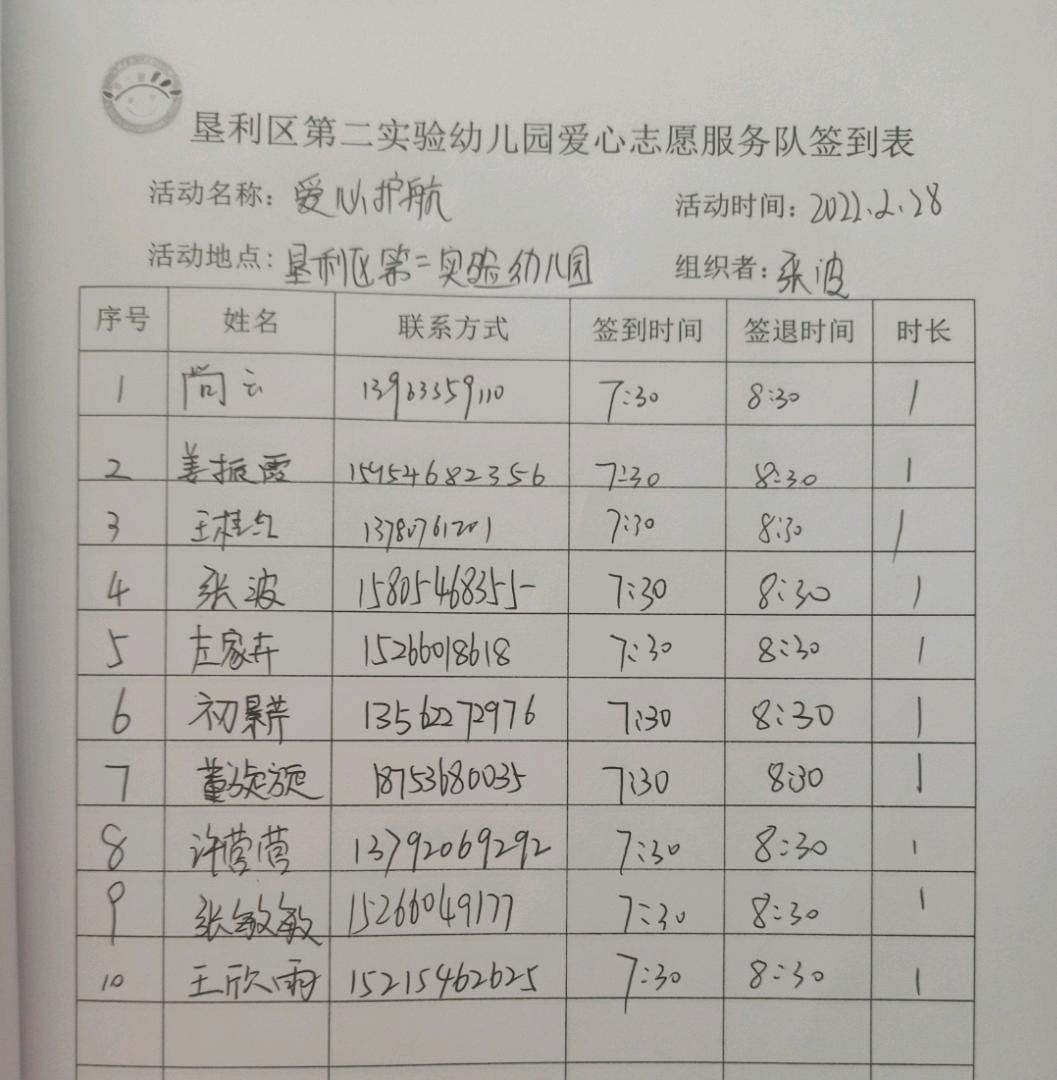 垦利区第二实验幼儿园爱心志愿服务队签到表
活动名称：爱心护航 活动时间：2022.2.28
活动地点：垦利区第二实验幼儿园 组织者：张波
序号 姓名 联系方式 签到时间 签退时间 时长
1 尚云 13963359110 7:30 8:30 1
2 姜振霞 159546822356 7:30 8:30 1
3 王桂 13780761201 7:30 8:30 1
4 张波 15805468355 7:30 8:30 1
5 左家卉 15266018618 7:30 8:30 1
6 初 13562272976 7:30 8:30 1
7 董旋旋 18753680035 7:30 8:30 1
8 许营营 13792069292 7:30 8:30 1
9 张敏敏 15266049177 7:30 8:30 1
10 王欣雨 15215462625 7:30 8:30 1